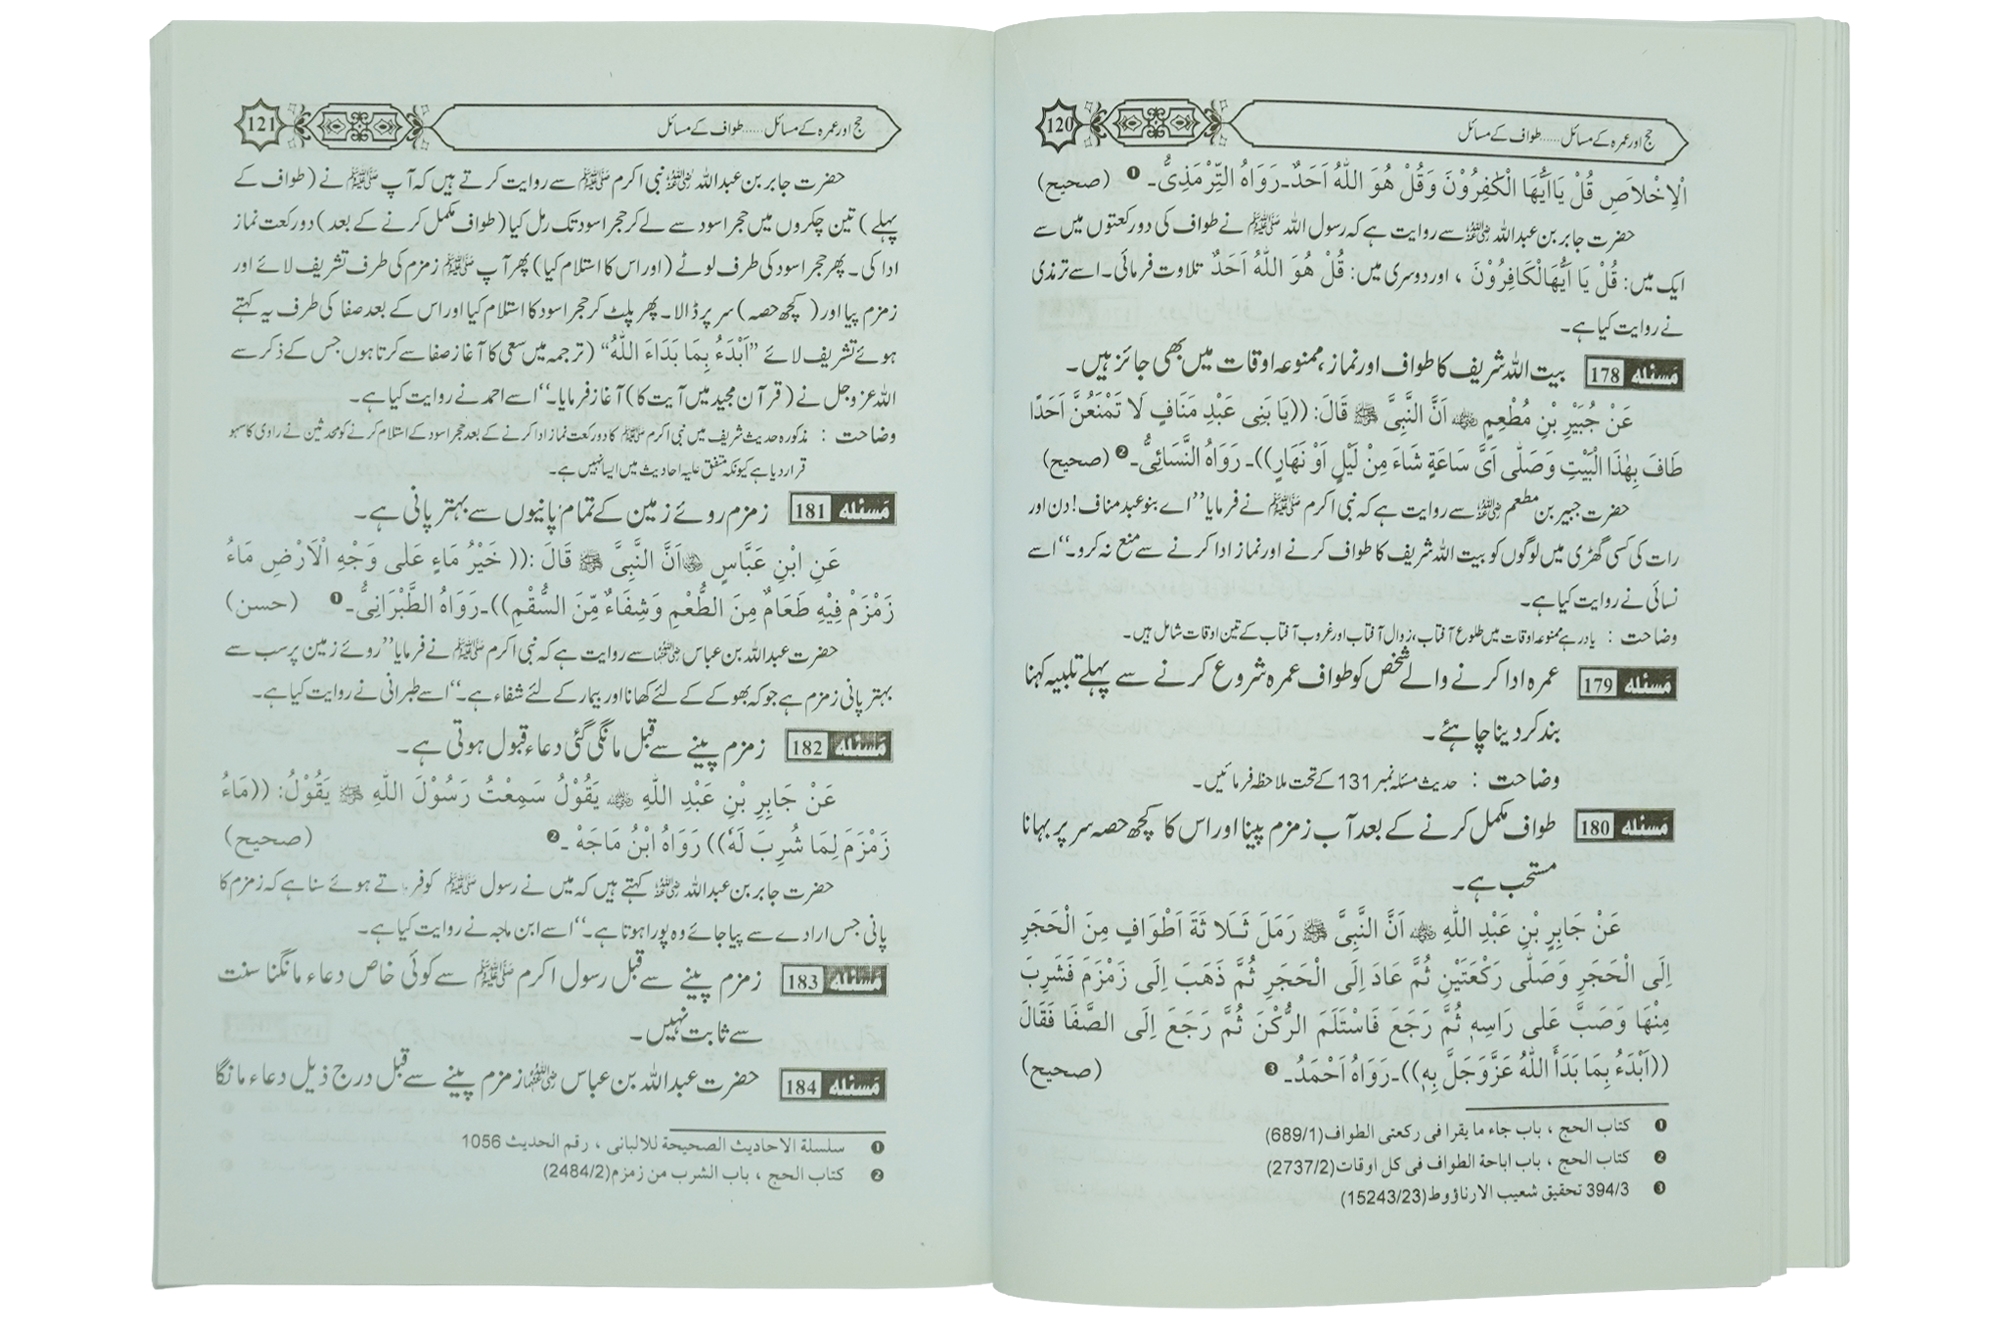 حج اور عمرہ کے مسائل ...... طواف کے مسائل
120
الْاِخْلَاصِ قُلْ يٰاَيُّهَا الْكٰفِرُوْنَ وَقُلْ هُوَ اللّٰهُ اَحَدٌ۔رَوَاهُ التِّرْمَذِىُّ۔ ❶ (صحيح)
حضرت جابر بن عبداللہ رضی اللہ عنہ سے روایت ہے کہ رسول اللہ ﷺ نے طواف کی دو رکعتوں میں سے
ایک میں: قُلْ يَا اَيُّهَا الْكَافِرُوْنَ ، اور دوسری میں: قُلْ هُوَ اللّٰهُ اَحَدٌ تلاوت فرمائی۔ اسے ترمذی
نے روایت کیا ہے۔
مسئلہ 178 بیت اللہ شریف کا طواف اور نماز، ممنوعہ اوقات میں بھی جائز ہیں۔
عَنْ جُبَيْرِ بْنِ مُطْعِمٍ رضی اللہ عنہ اَنَّ النَّبِىَّ ﷺ قَالَ: ((يَا بَنِى عَبْدِ مَنَافٍ لَا تَمْنَعُنَّ اَحَدًا
طَافَ بِهٰذَا الْبَيْتِ وَصَلّٰى اَىَّ سَاعَةٍ شَاءَ مِنْ لَيْلٍ اَوْ نَهَارٍ))۔ رَوَاهُ النَّسَائِىُّ۔❷ (صحيح)
حضرت جبیر بن مطعم رضی اللہ عنہ سے روایت ہے کہ نبی اکرم ﷺ نے فرمایا ’’اے بنو عبد مناف! دن اور
رات کی کسی گھڑی میں لوگوں کو بیت اللہ شریف کا طواف کرنے اور نماز ادا کرنے سے منع نہ کرو۔‘‘ اسے
نسائی نے روایت کیا ہے۔
وضاحت : یاد رہے ممنوعہ اوقات میں طلوع آفتاب، زوال آفتاب اور غروب آفتاب کے تین اوقات شامل ہیں۔
مسئلہ 179 عمرہ ادا کرنے والے شخص کو طواف عمرہ شروع کرنے سے پہلے تلبیہ کہنا
بند کر دینا چاہئے۔
وضاحت : حدیث مسئلہ نمبر 131 کے تحت ملاحظہ فرمائیں۔
مسئلہ 180 طواف مکمل کرنے کے بعد آب زمزم پینا اور اس کا کچھ حصہ سر پر بہانا
مستحب ہے۔
عَنْ جَابِرِ بْنِ عَبْدِ اللّٰهِ رضی اللہ عنہ اَنَّ النَّبِىَّ ﷺ رَمَلَ ثَلَا ثَةَ اَطْوَافٍ مِنَ الْحَجَرِ
اِلَى الْحَجَرِ وَصَلّٰى رَكْعَتَيْنِ ثُمَّ عَادَ اِلَى الْحَجَرِ ثُمَّ ذَهَبَ اِلَى زَمْزَمَ فَشَرِبَ
مِنْهَا وَصَبَّ عَلَى رَاسِهٖ ثُمَّ رَجَعَ فَاسْتَلَمَ الرُّكْنَ ثُمَّ رَجَعَ اِلَى الصَّفَا فَقَالَ
((اَبْدَءُ بِمَا بَدَأَ اللّٰهُ عَزَّوَجَلَّ بِهٖ))۔رَوَاهُ اَحْمَدُ۔ ❸ (صحيح)
❶ كتاب الحج ، باب جاء ما يقرا فى ركعتى الطواف(689/1)
❷ كتاب الحج ، باب اباحة الطواف فى كل اوقات(2737/2)
❸ 394/3 تحقيق شعيب الارناؤوط(15243/23)
حج اور عمرہ کے مسائل ...... طواف کے مسائل
121
حضرت جابر بن عبداللہ رضی اللہ عنہ نبی اکرم ﷺ سے روایت کرتے ہیں کہ آپ ﷺ نے (طواف کے
پہلے) تین چکروں میں حجر اسود سے لے کر حجر اسود تک رمل کیا (طواف مکمل کرنے کے بعد) دو رکعت نماز
ادا کی۔ پھر حجر اسود کی طرف لوٹے (اور اس کا استلام کیا) پھر آپ ﷺ زمزم کی طرف تشریف لائے اور
زمزم پیا اور (کچھ حصہ) سر پر ڈالا۔ پھر پلٹ کر حجر اسود کا استلام کیا اور اس کے بعد صفا کی طرف یہ کہتے
ہوئے تشریف لائے ’’اَبْدَءُ بِمَا بَدَاءَ اللّٰهُ‘‘ (ترجمہ میں سعی کا آغاز صفا سے کرتا ہوں جس کے ذکر سے
اللہ عزوجل نے (قرآن مجید میں آیت کا) آغاز فرمایا۔‘‘ اسے احمد نے روایت کیا ہے۔
وضاحت : مذکورہ حدیث شریف میں نبی اکرم ﷺ کا دو رکعت نماز ادا کرنے کے بعد حجر اسود کے استلام کرنے کو محدثین نے راوی کا سہو
قرار دیا ہے کیونکہ متفق علیہ احادیث میں ایسا نہیں ہے۔
مسئلہ 181 زمزم روئے زمین کے تمام پانیوں سے بہتر پانی ہے۔
عَنِ ابْنِ عَبَّاسٍ رضی اللہ عنہما اَنَّ النَّبِىَّ ﷺ قَالَ :(( خَيْرُ مَاءٍ عَلٰى وَجْهِ الْاَرْضِ مَاءُ
زَمْزَمْ فِيْهِ طَعَامٌ مِنَ الطُّعْمِ وَشِفَاءٌ مِّنَ السُّقْمِ))۔رَوَاهُ الطَّبْرَانِىُّ۔❶ (حسن)
حضرت عبداللہ بن عباس رضی اللہ عنہما سے روایت ہے کہ نبی اکرم ﷺ نے فرمایا ’’روئے زمین پر سب سے
بہتر پانی زمزم ہے جو کہ بھوکے کے لئے کھانا اور بیمار کے لئے شفاء ہے۔‘‘ اسے طبرانی نے روایت کیا ہے۔
مسئلہ 182 زمزم پینے سے قبل مانگی گئی دعاء قبول ہوتی ہے۔
عَنْ جَابِرِ بْنِ عَبْدِ اللّٰهِ رضی اللہ عنہ يَقُوْلُ سَمِعْتُ رَسُوْلَ اللّٰهِ ﷺ يَقُوْلُ: ((مَاءُ
زَمْزَمَ لِمَا شُرِبَ لَهٗ)) رَوَاهُ ابْنُ مَاجَهْ ۔❷ (صحيح)
حضرت جابر بن عبداللہ رضی اللہ عنہ کہتے ہیں کہ میں نے رسول ﷺ کو فرماتے ہوئے سنا ہے کہ زمزم کا
پانی جس ارادے سے پیا جائے وہ پورا ہوتا ہے۔‘‘ اسے ابن ماجہ نے روایت کیا ہے۔
مسئلہ 183 زمزم پینے سے قبل رسول اکرم ﷺ سے کوئی خاص دعاء مانگنا سنت
سے ثابت نہیں۔
مسئلہ 184 حضرت عبداللہ بن عباس رضی اللہ عنہما زمزم پینے سے قبل درج ذیل دعاء مانگا
❶ سلسلة الاحاديث الصحيحة للالبانى ، رقم الحديث 1056
❷ كتاب الحج ، باب الشرب من زمزم(2484/2)